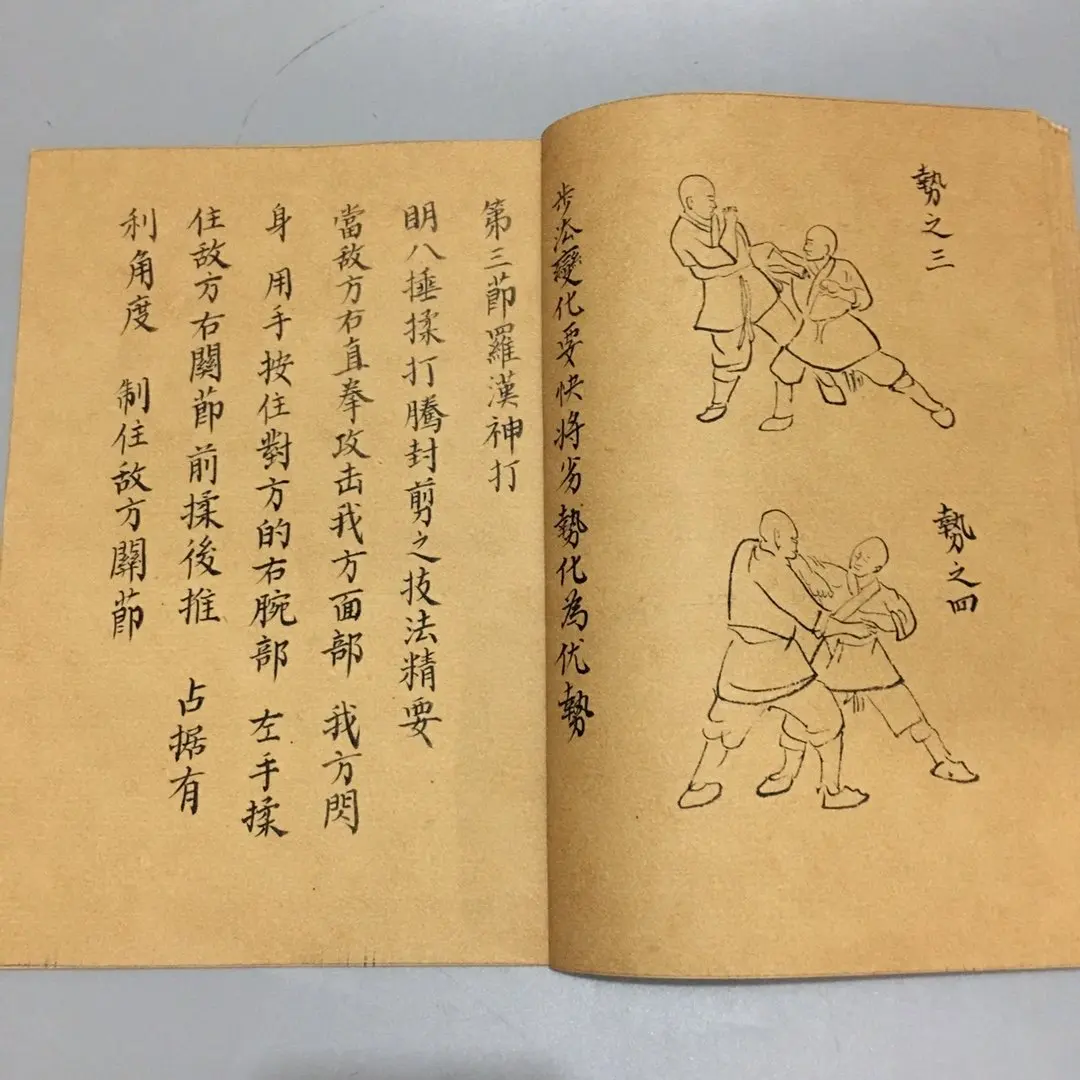 勢之三
勢之四
步法變化要快將劣勢化為优勢
第三節羅漢神打
明八捶揉打騰封剪之技法精要
當敌方右直拳攻击我方面部 我方閃
身 用手按住對方的右腕部 左手揉
住敌方右關節前揉後推 占据有
利角度 制住敌方關節